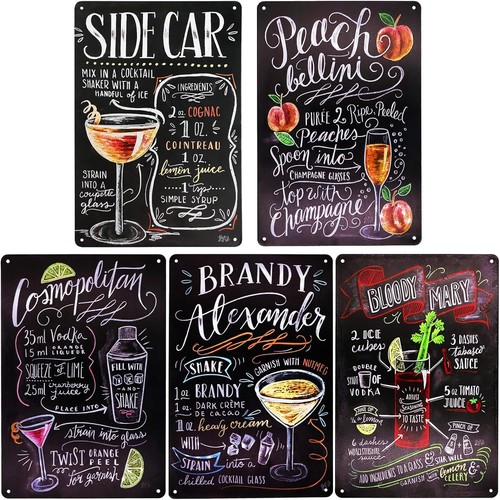 SIDE CAR
MIX IN A COCKTAIL
SHAKER WITH A
HANDFUL OF ICE
INGREDIENTS
2 oz. COGNAC
1 OZ.
COINTREAU
1 OZ.
lemon juice
1 tsp.
SIMPLE SYRUP
STRAIN
INTO A
coupette
glass
Peach
bellini
PURÉE 2 Ripe, Peeled
Peaches
Spoon into
CHAMPAGNE GLASSES
top with
Champagne
Cosmopolitan
35ml Vodka
15ml ORANGE
LIQUEUR
SQUEEZE OF LIME
25ml cranberry
juice
PLACE INTO
FILL WITH
ICE
-AND-
SHAKE
strain into glass
TWIST ORANGE
PEEL
for garnish
BRANDY
Alexander
SHAKE
GARNISH WITH NUTMEG
1 oz BRANDY
1 oz. DARK CRÈME
DE CACAO
1 oz heavy cream
WITH
STRAIN into a
chilled COCKTAIL GLASS
BLOODY MARY
2 ICE
cubes
3 DASHES
Tabasco
SAUCE
DOUBLE
SHOT OF
VODKA
ADJUST
SEASONING
TO TASTE
5 oz TOMATO
JUICE
1/2 a
lemon
PINCH OF
6 dashes
WORCESTERSHIRE
sauce
ADD INGREDIENTS TO A GLASS & STIR WELL
GARNISH WITH LEMON
& CELERY